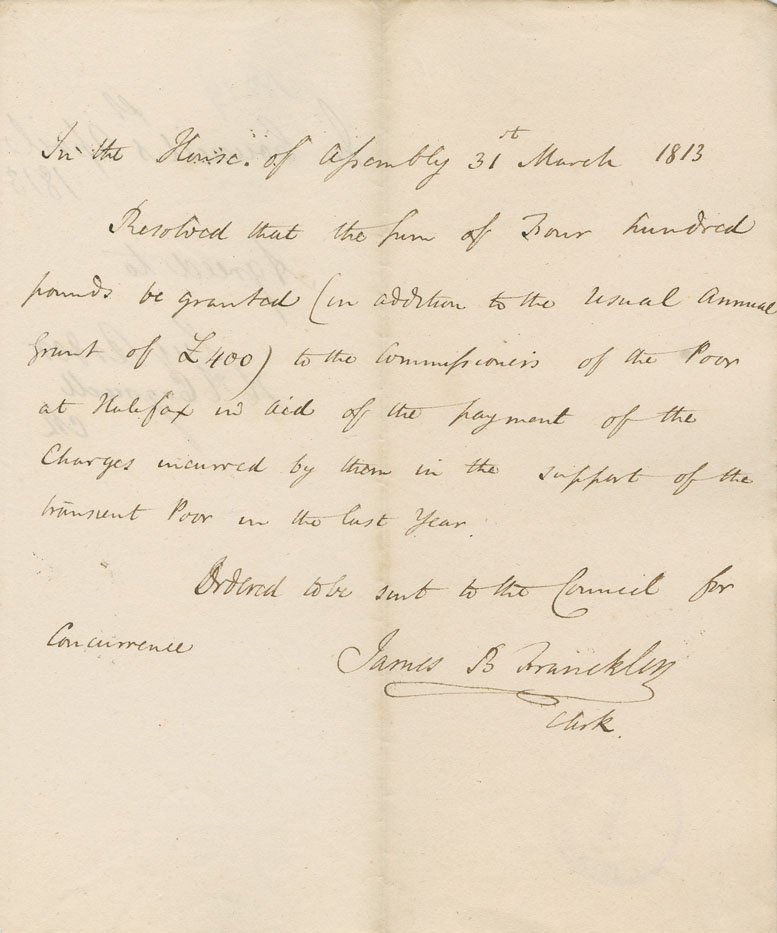 In the House of Assembly 31st March 1813
Resolved that the sum of Four hundred
pounds be granted (in addition to the Usual Annual
Grant of £400) to the Commissioners of the Poor
at Halifax in aid of the payment of the
Charges incurred by them in the support of the
transient Poor in the last Year.
Ordered to be sent to the Council for
Concurrence
James B Franckling
Clerk.